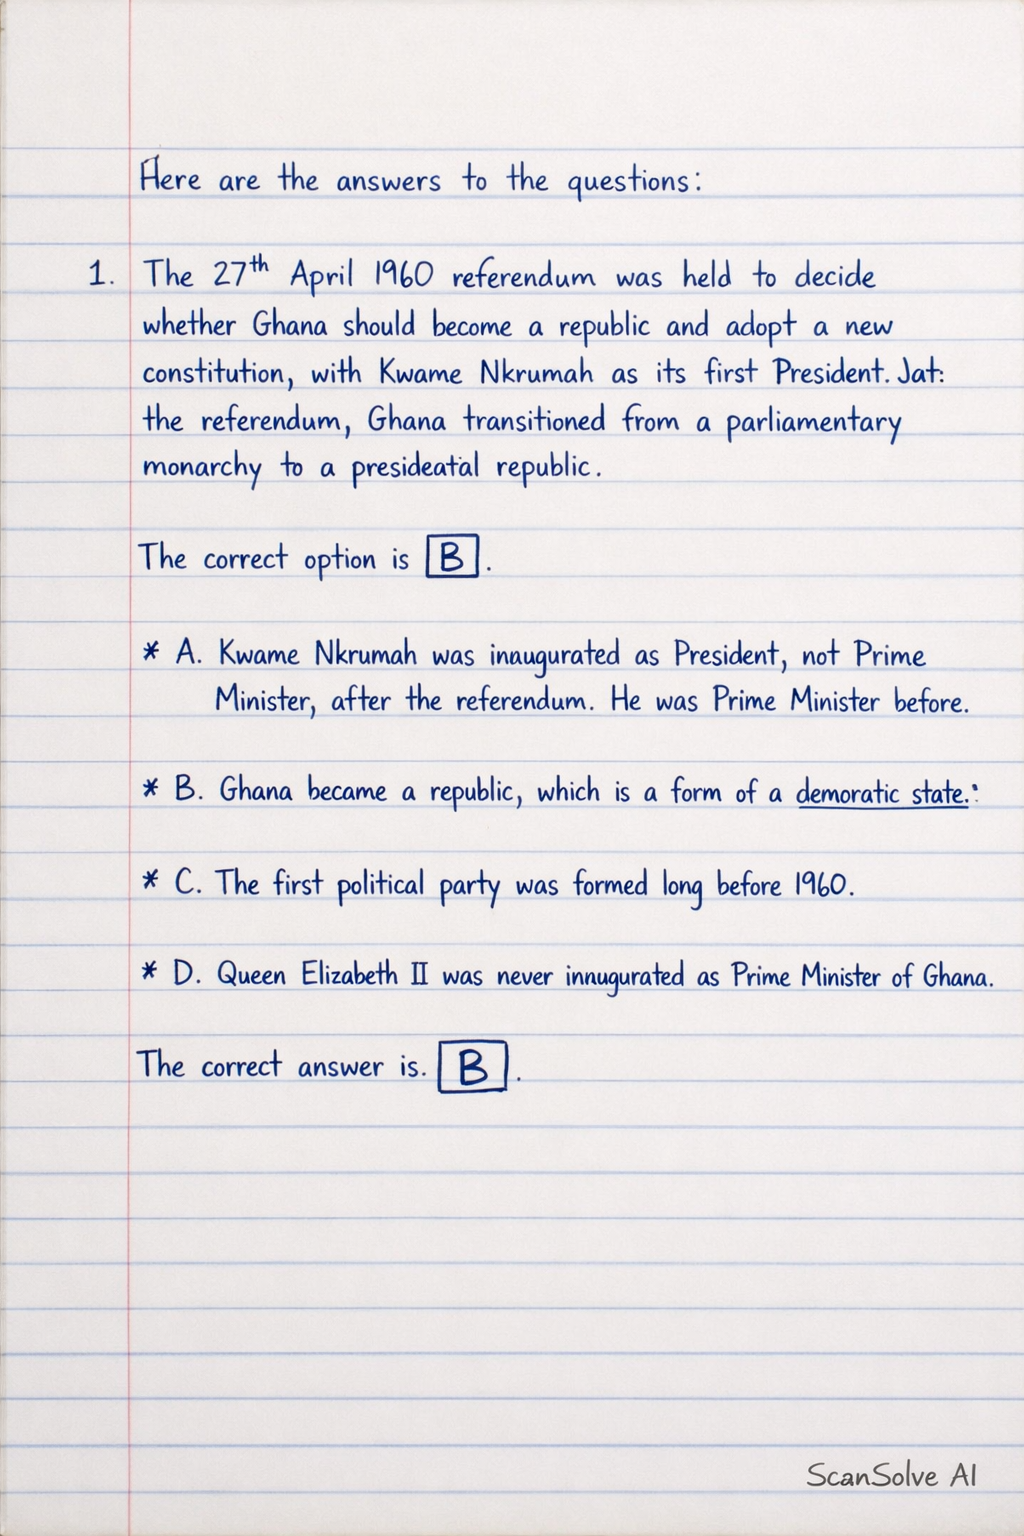 Here are the answers to the questions:
1. The 27th April 1960 referendum was held to decide
whether Ghana should become a republic and adopt a new
constitution, with Kwame Nkrumah as its first President. Jat:
the referendum, Ghana transitioned from a parliamentary
monarchy to a presideatal republic.
The correct option is B.
* A. Kwame Nkrumah was inaugurated as President, not Prime
Minister, after the referendum. He was Prime Minister before.
* B. Ghana became a republic, which is a form of a demoratic state.:
* C. The first political party was formed long before 1960.
* D. Queen Elizabeth II was never innugurated as Prime Minister of Ghana.
The correct answer is. B.
ScanSolve AI